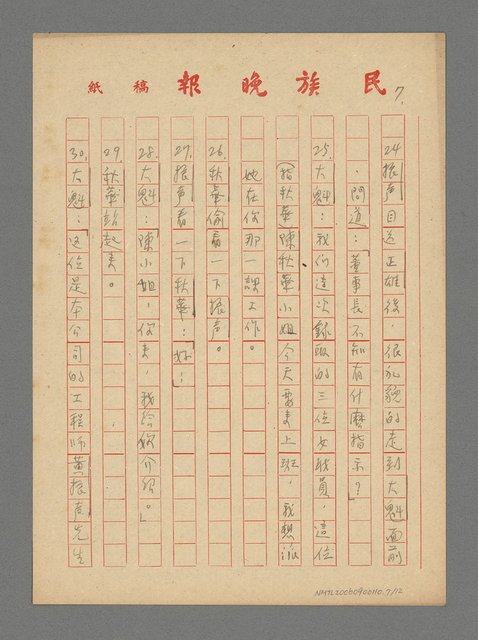 民族晚報 稿紙
7.
24.振聲目送正雄後，很礼貌的走到大魁面前
，問道：「董事長不知有什麼指示？」
25.大魁：我们這次錄取的三位女職員，這位
(指秋華)陳秋華小姐今天要來上班，我想派
她在你那一課工作。
26.秋華偷看一下振声。
27.振声看一下秋華：「好！」
28.大魁：「陳小姐，你來，我给你介紹。」
29.秋華站起來。
30.大魁：「這位是本公司的工程师黄振声先生
NMTL20060900110.7/12